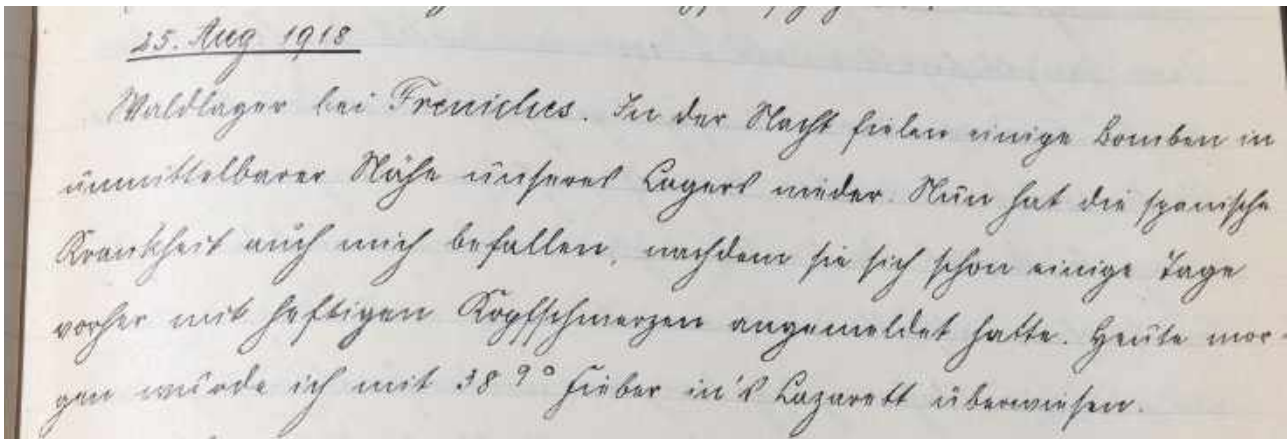 25. Aug 1918
Waldlager bei Freniches. In der Nacht fielen einige Bomben in
unmittelbarer Nähe unseres Lagers nieder. Nun hat die spanische
Krankheit auch mich befallen, nachdem sie sich schon einige Tage
vorher mit heftigen Kopfschmerzen angemeldet hatte. Heute mor-
gen wurde ich mit 38 9° Fieber in's Lazarett überwiesen.